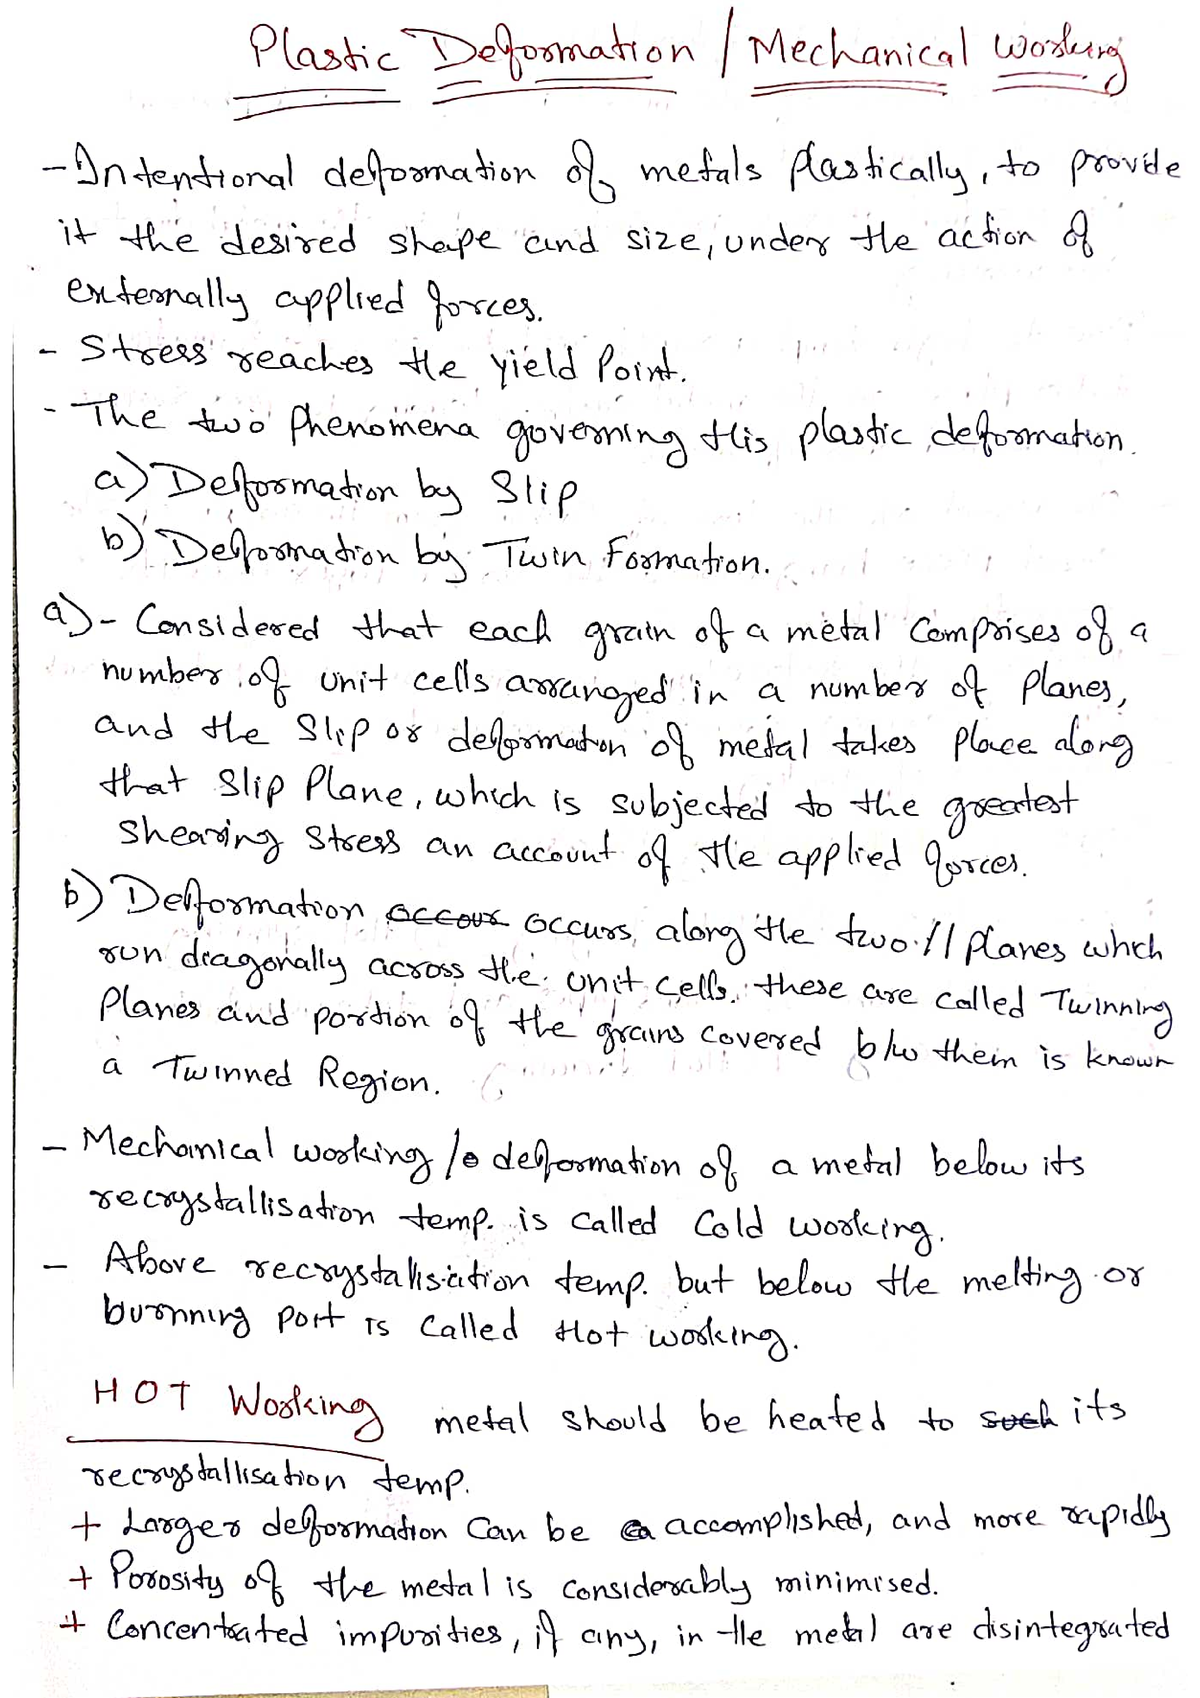 Plastic Deformation / Mechanical Working
- Intentional deformation of metals plastically, to provide
it the desired shape and size, under the action of
externally applied forces.
- Stress reaches the yield Point.
- The two Phenomena governing this plastic deformation.
a) Deformation by Slip
b) Deformation by Twin Formation.
a) - Considered that each grain of a metal Comprises of a
number of unit cells arranged in a number of Planes,
and the Slip or deformation of metal takes Place along
that Slip Plane, which is subjected to the greatest
Shearing Stress an account of the applied forces.
b) Deformation occour occurs, along the two // planes which
run diagonally across the unit cells. these are called Twinning
Planes and portion of the grains covered b/w them is known
a Twinned Region.
- Mechanical working /o deformation of a metal below its
recrystallisation temp. is called Cold working.
- Above recrystallisation temp. but below the melting or
burnning poit is called Hot working.
HOT Working metal should be heated to such its
recrystallisation temp.
+ Larger deformation Can be ea accomplished, and more rapidly
+ Porosity of the metal is Considerably minimised.
+ Concentrated impurities, if any, in the metal are disintegrated